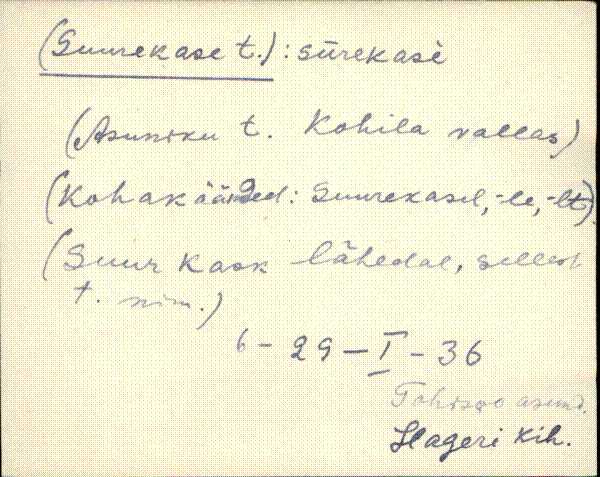 (Suurekase t.): sūrekasè
(Asuniku t. Kohila vallas)
(Kohakäänded: Suurekasel, -le, -lt).
(Suur kask lähedal, sellest
t. nim.)
6 - 29 - I - 36
Tohisoo asund.
Hageri kih.